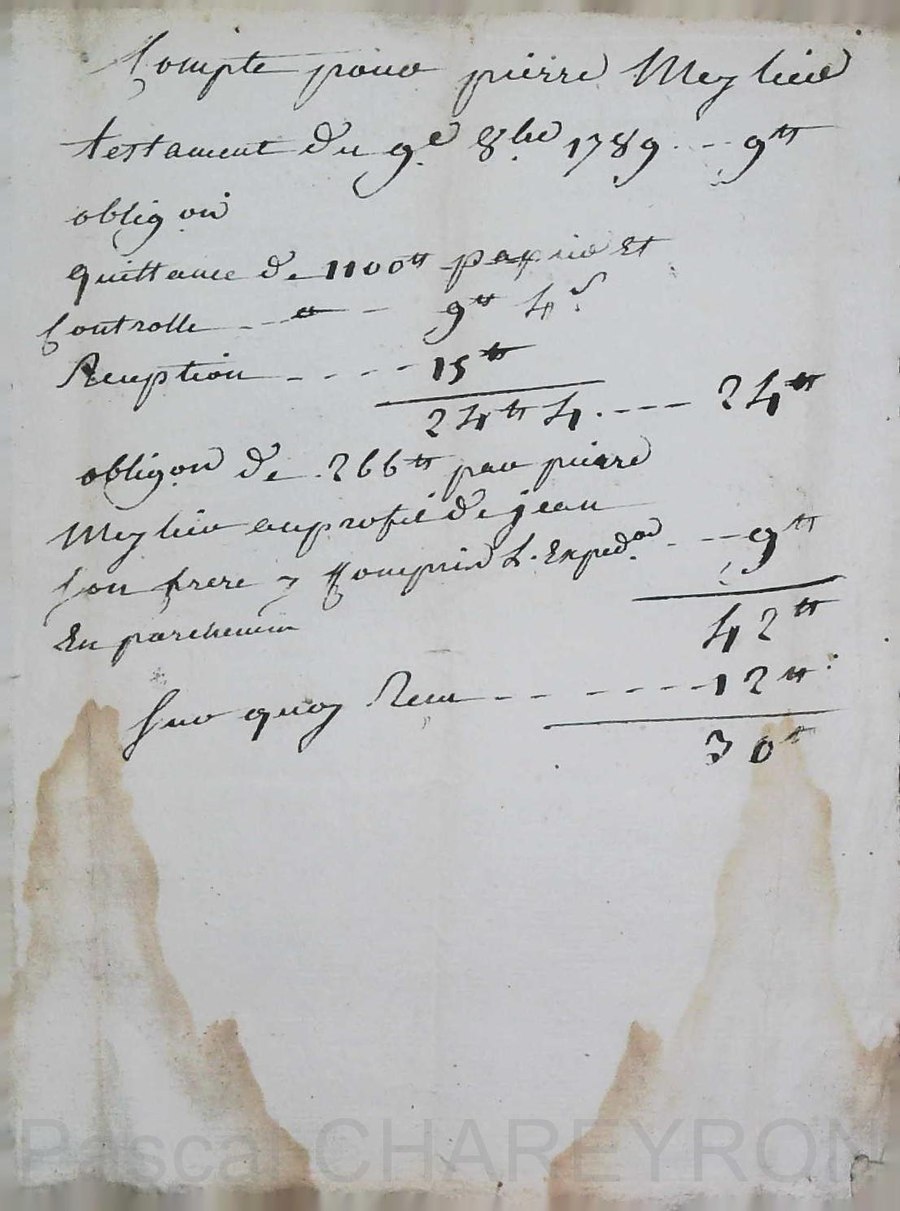 Compte pour pierre Meylieu
testament du 9e 8bre 1789 --- 9tt
obligon
quittance de 1100tt papier Et
Controlle -- 9tt 4s
Reception ---- 15tt
24tt 4. --- 24tt
obligon de 266tt par pierre
au profit de jean
son frere y Compris L. Expedon -- 9tt
En parchemin
42tt
Sur quoy Recu -------- 12tt
30tt
Pascal CHAREYRON